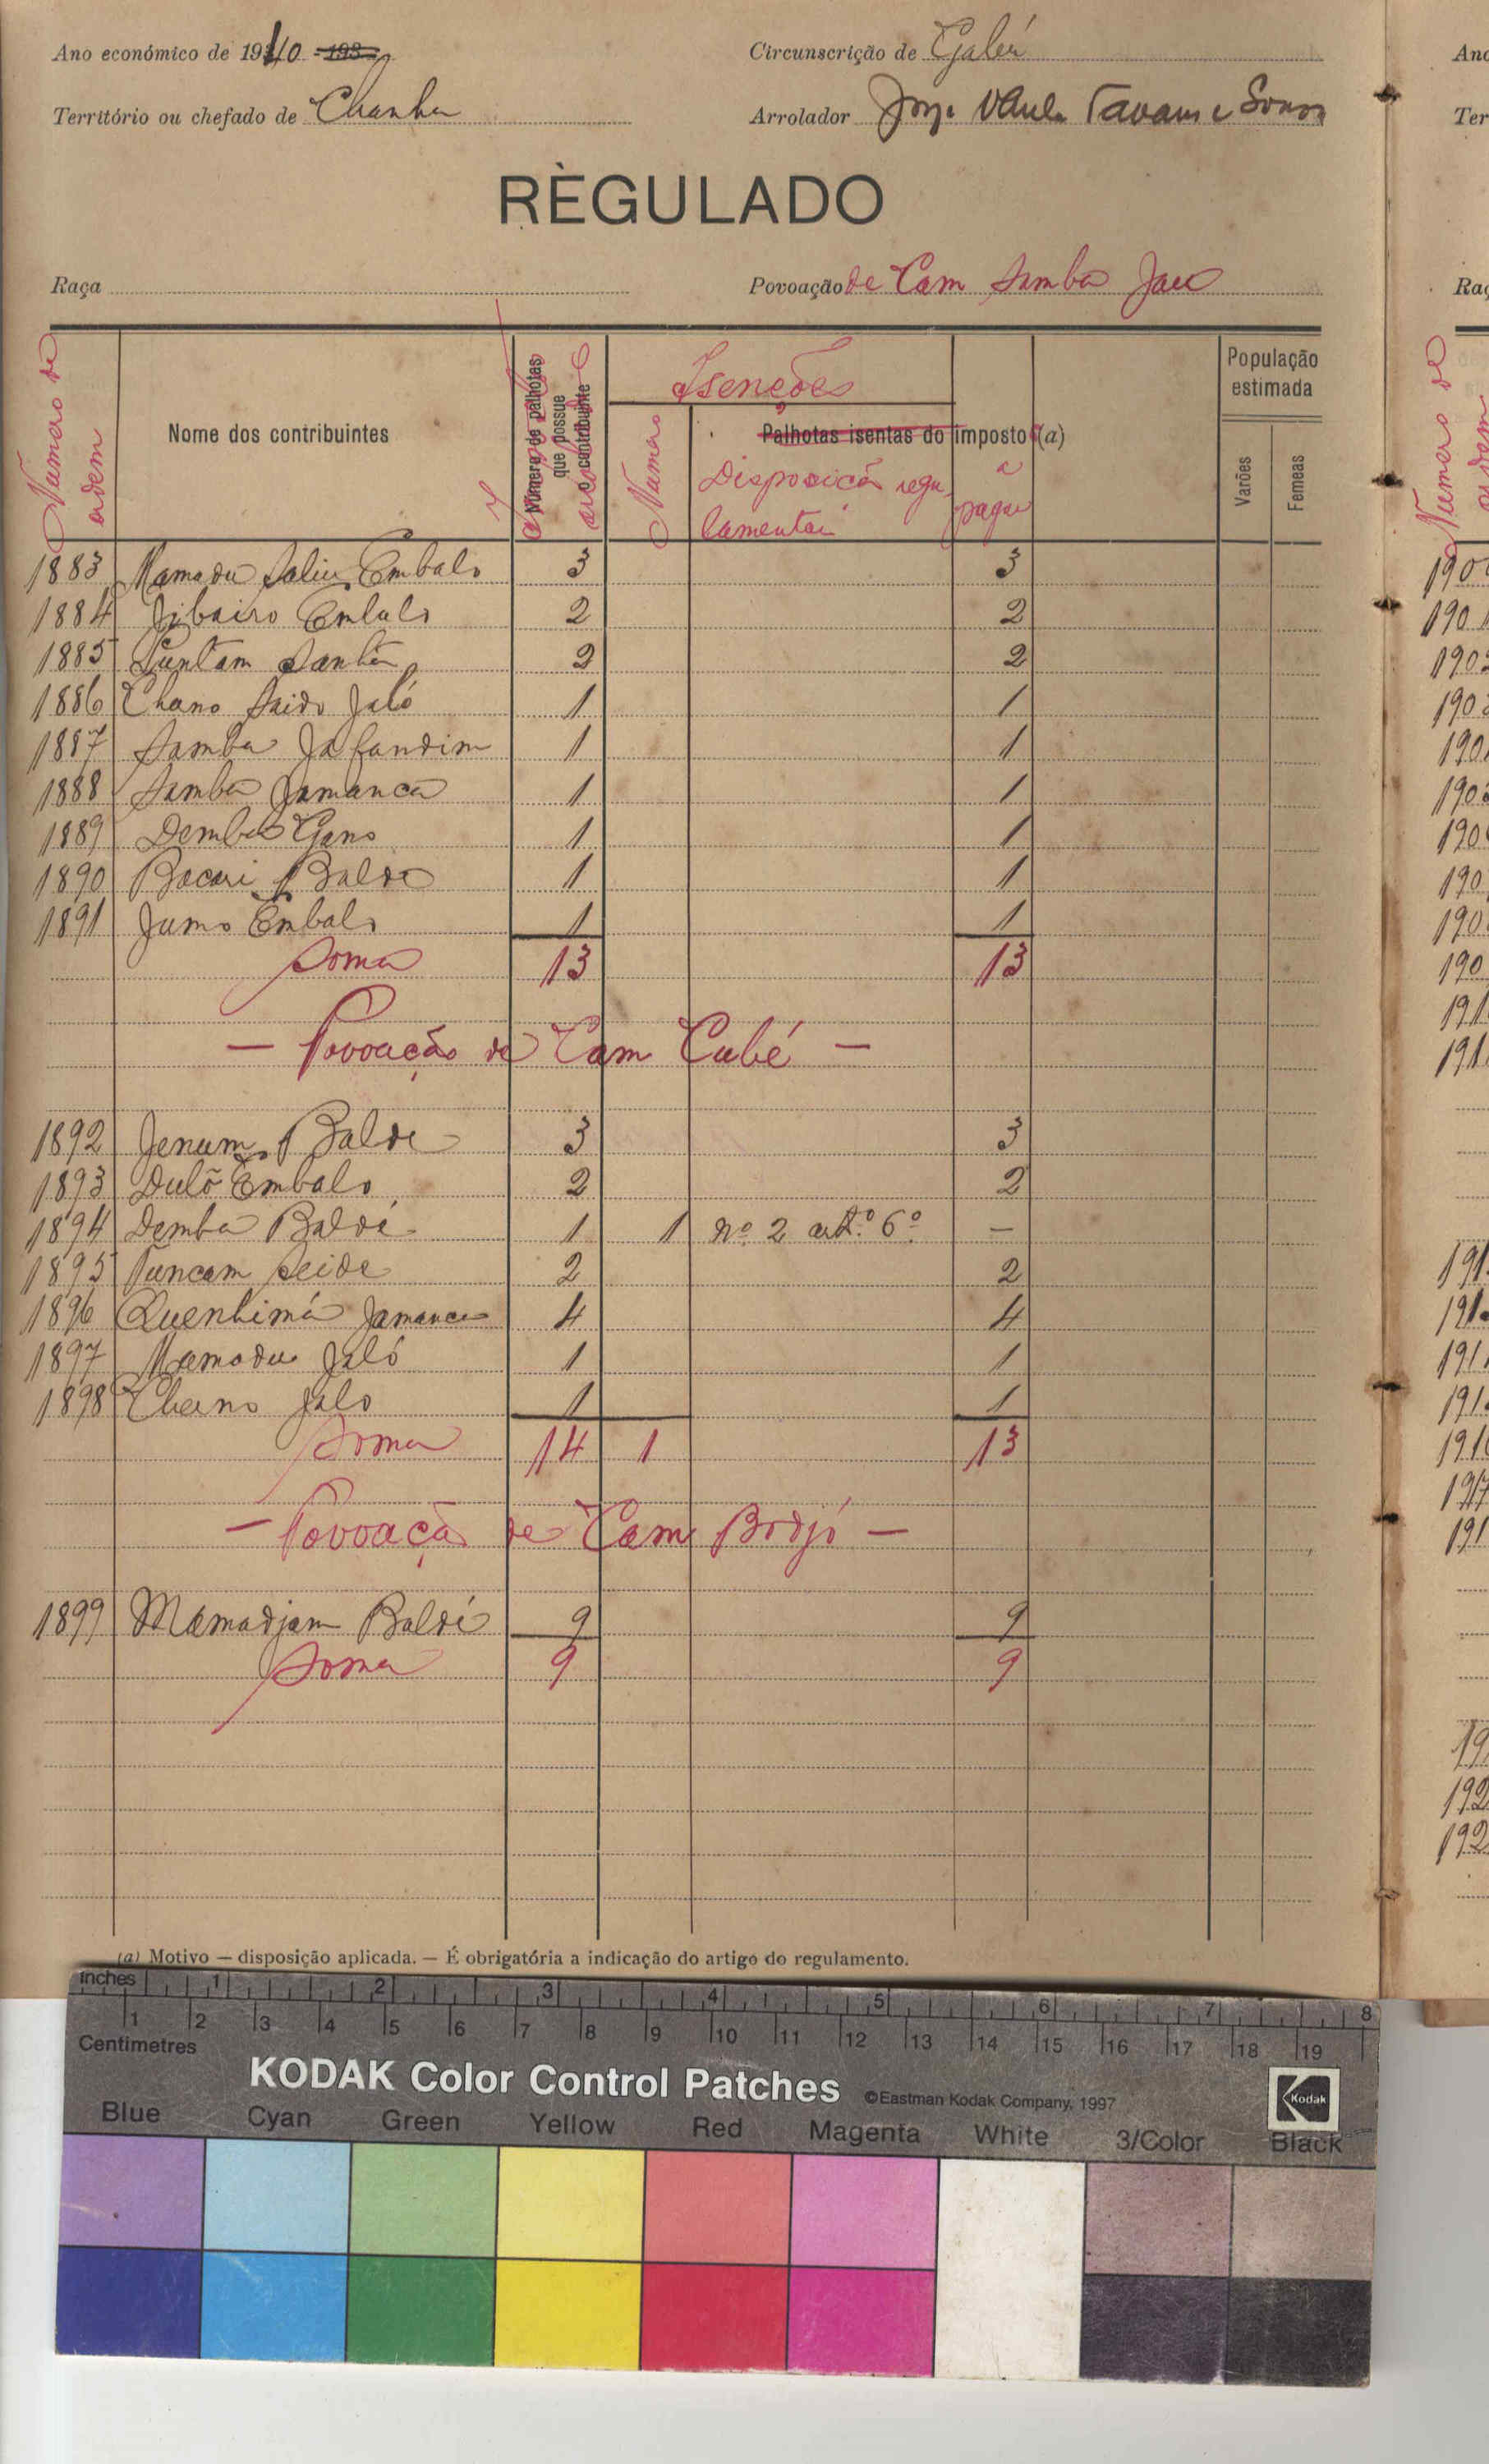 Ano económico de 1940 193
Circunscrição de Gabú
Território ou chefado de Chanha
Arrolador Jorge Tavares e Sousa
RÈGULADO
Raça
Povoação de Cam Samba Jau
Numero de ordem
Nome dos contribuintes
Número de palhotas que possue o contribuinte
Isenções
Numero
Palhotas isentas do imposto (a)
Disposição regulamentar
a pagar
População estimada
Varões
Femeas
1883 Mamadu Saliu Embaló 3 3
1884 Jibairo Embaló 2 2
1885 2 2
1886 Chano Saido Jaló 1 1
1887 Samba Jafandim 1 1
1888 Samba Jamanca 1 1
1889 Demba Gano 1 1
1890 Bacari Balde 1 1
1891 Jumo Embaló 1 1
Soma 13 13
— Povoação de Cam Cubé —
1892 Jenum Balde 3 3
1893 Dulô Embalo 2 2
1894 Demba Baldé 1 1 nº 2 artº 6º —
1895 Puncam Seide 2 2
1896 Quenhimá Jamanca 4 4
1897 Mamadu Jaló 1 1
1898 Cherno Jalo 1 1
Soma 14 1 13
— Povoação de Cam Bodjó —
1899 Mamadjam Baldé 9 9
Soma 9 9
(a) Motivo — disposição aplicada. — É obrigatória a indicação do artigo do regulamento.
Inches 1 2 3 4 5 6 7 8
1 2 3 4 5 6 7 8 9 10 11 12 13 14 15 16 17 18 19
Centimetres
KODAK Color Control Patches ©Eastman Kodak Company, 1997 Kodak
Blue Cyan Green Yellow Red Magenta White 3/Color Black